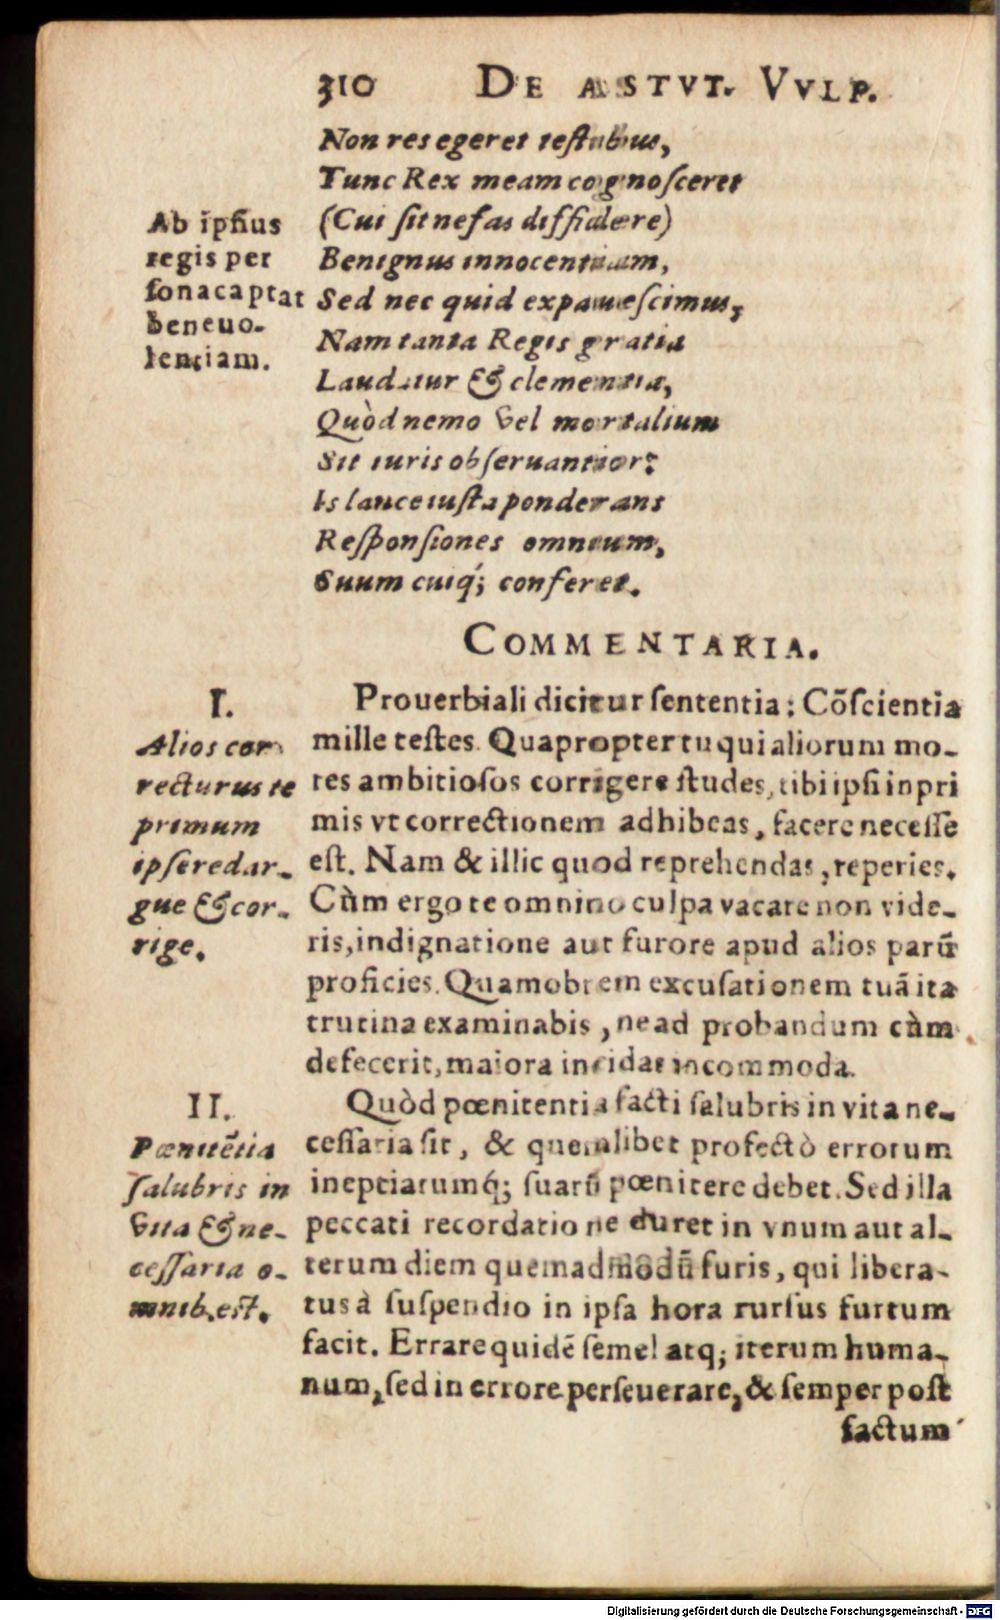 310 DE ASTVT. VVLP.
Non res egeret testibus,
Tunc Rex meam cognosceret
(Cui sit nefas diffidere)
Benignus innocentiam,
Sed nec quid expauescimus,
Nam tanta Regis gratia
Laudatur & clementia,
Quòd nemo vel mortalium
Sit iuris obseruantior:
Is lance iusta ponderans
Responsiones omnium,
Suum cuiq́; conferet.
Ab ipsius
regis per
sona captat
beneuo-
lentiam.
COMMENTARIA.
I.
Alios cor
recturus te
primum
ipse redar-
gue & cor-
rige.
Prouerbiali dicitur sententia: Cõscientia
mille testes. Quapropter tu qui aliorum mo-
res ambitiosos corrigere studes, tibi ipsi inpri
mis vt correctionem adhibeas, facere necesse
est. Nam & illic quod reprehendas, reperies.
Cùm ergo te omnino culpa vacare non vide-
ris, indignatione aut furore apud alios parũ
proficies. Quamobrem excusationem tuã ita
trutina examinabis, ne ad probandum cùm
defecerit, maiora incidas incommoda.
II.
Pœnitẽtia
salubris in
vita & ne-
cessaria o-
mnib. est.
Quòd pœnitentia facti salubris in vita ne-
cessaria sit, & quemlibet profectò errorum
ineptiarumq́; suarũ pœnitere debet. Sed illa
peccati recordatione duret in vnum aut al-
terum diem quemadmodũ furis, qui libera-
tus à suspendio in ipsa hora rursus furtum
facit. Errare quidẽ semel atq; iterum huma-
num, sed in errore perseuerare, & semper post
factum
Digitalisierung gefördert durch die Deutsche Forschungsgemeinschaft - DFG